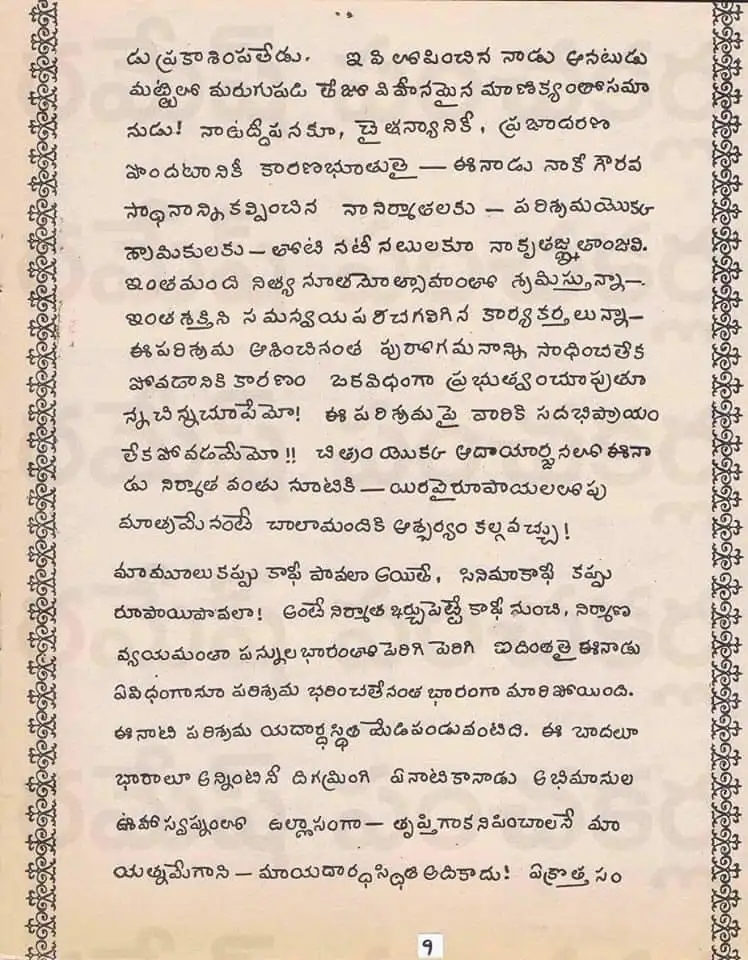 డు ప్రకాశింపలేడు. ఇవి లోపించిన నాడు ఆనటుడు
మట్టిలో మరుగుపడి తేజో విహీనమైన మాణిక్యంతో సమా
నుడు! నా ఉద్దీపనకూ, చైతన్యానికీ, ప్రజాదరణ
పొందటానికీ కారణభూతులై — ఈనాడు నాకీ గౌరవ
స్థానాన్ని కల్పించిన నా నిర్మాతలకు — పరిశ్రమయొక్క
శ్రామికులకు — తోటి నటీనటులకూ నా కృతజ్ఞతాంజలి.
ఇంతమంది నిత్య నూతనోత్సాహంతో శ్రమిస్తున్నా—
ఇంత శక్తిని సమన్వయపరచగలిగిన కార్యకర్తలున్నా—
ఈ పరిశ్రమ ఆశించినంత పురోగమనాన్ని సాధించలేక
పోవడానికి కారణం ఒకవిధంగా ప్రభుత్వం చూపుతూ
న్న చిన్నచూపేమో! ఈ పరిశ్రమపై వారికి సదభిప్రాయం
లేకపోవడమేమో!! చిత్రం యొక్క ఆదాయార్జనలో ఈనా
డు నిర్మాత వంతు నూటికి — యిరవైరూపాయలలోపు
మాత్రమేనంటే చాలామందికి ఆశ్చర్యం కల్గవచ్చు!
మామూలు కప్పు కాఫీ పావలా అయితే, సినిమాకాఫీ కప్పు
రూపాయిపావలా! అంటే నిర్మాత ఖర్చుపెట్టే కాఫీ నుంచి, నిర్మాణ
వ్యయమంతా పన్నుల భారంతో పెరిగి పెరిగి ఐదింతలై ఈనాడు
ఏవిధంగానూ పరిశ్రమ భరించలేనంత భారంగా మారిపోయింది.
ఈనాటి పరిశ్రమ యదార్ధస్థితి మేడిపండువంటిది. ఈ బాదలూ
భారాలూ అన్నింటినీ దిగమ్రింగి ఏనాటికానాడు అభిమానుల
ఊహాస్వప్నంలో ఉల్లాసంగా — తృప్తిగా కనిపించాలనే మా
యత్నమేగాని — మా యదార్ధస్థితి అదికాదు! ఏ క్రొత్త సం
9